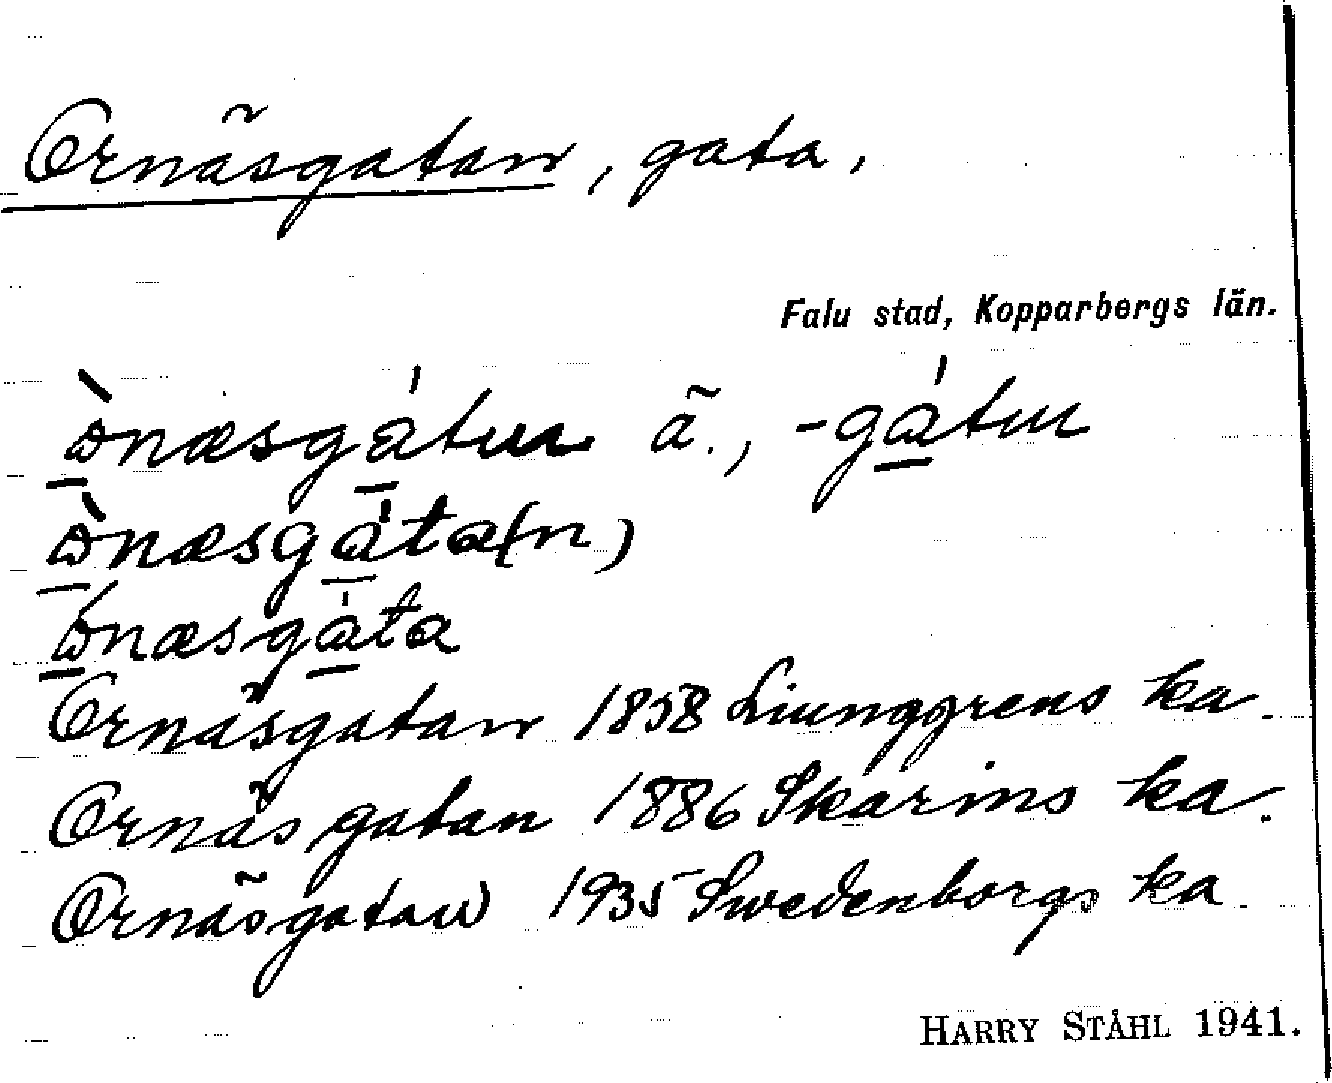 Ornäsgatan, gata,
Falu stad, Kopparbergs län.
ònæsgátun ä., -gátun
ònæsgáta(n)
ónæsgáta
Ornäsgatan 1858 Liunggrens ka
Ornäs gatan 1886 Skarins ka.
Ornäsgatan 1935 Swedenborgs ka.
HARRY STÅHL 1941.